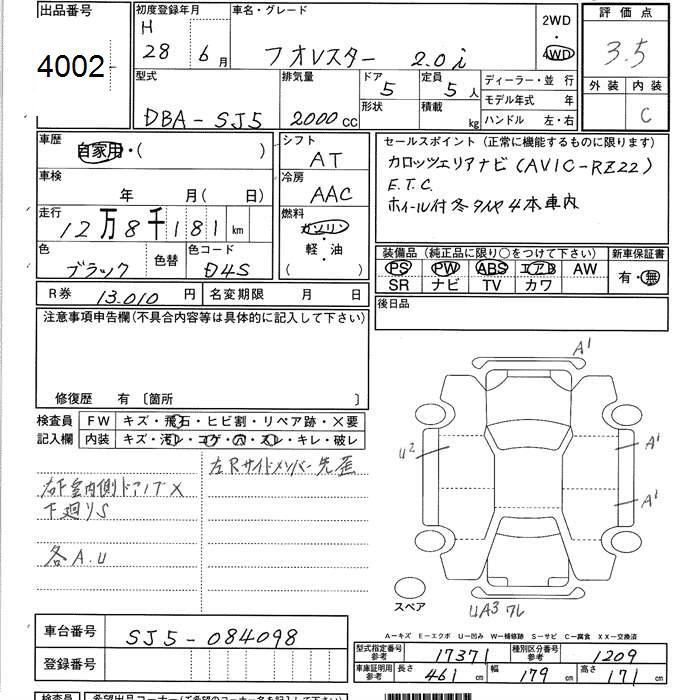 出品番号
4002
初度登録年月
H
28 6月
車名・グレード
フオレスター 2.0i
2WD
・
4WD
評価点
3.5
外装 内装
C
型式
DBA-SJ5
排気量
2000 cc
ドア
5
形状
定員
5人
積載
kg
ディーラー・並行
モデル年式 年
ハンドル 左・右
車歴
自家用・( )
車検
年 月( 日)
走行
12万8千181 km
色
ブラック
色替
色コード
D4S
シフト
AT
冷房
AAC
燃料
ガソリン
・
軽・油
( )
R券 13.010 円
名変期限 月 日
セールスポイント (正常に機能するものに限ります)
カロッツエリアナビ(AVIC-RZ22)
E.T.C.
ホイール付冬タイヤ4本車内
装備品 (純正品に限り○をつけて下さい)
PS PW ABS エアB AW
SR ナビ TV カワ
新車保証書
有・無
後日品
注意事項申告欄(不具合内容等は具体的に記入して下さい)
修復歴 有 〔箇所 〕
検査員
記入欄
FW キズ・飛石・ヒビ割・リペア跡・×要
内装 キズ・汚レ・コゲ・穴・スレ・キレ・破レ
左Rサイドメンバー先歪
右F室内側ドアノブ×
下廻りS
各A.U
A1
U2
A1
A1
UA3ワレ
スペア
A-キズ E-エクボ U-凹み W-補修跡 S-サビ C-腐食 XX-交換済
車台番号
SJ5-084098
登録番号
型式指定番号
参考
17371
種別区分番号
参考
1209
車庫証明用
参考
長さ 461 cm 幅 179 cm 高さ 171 cm